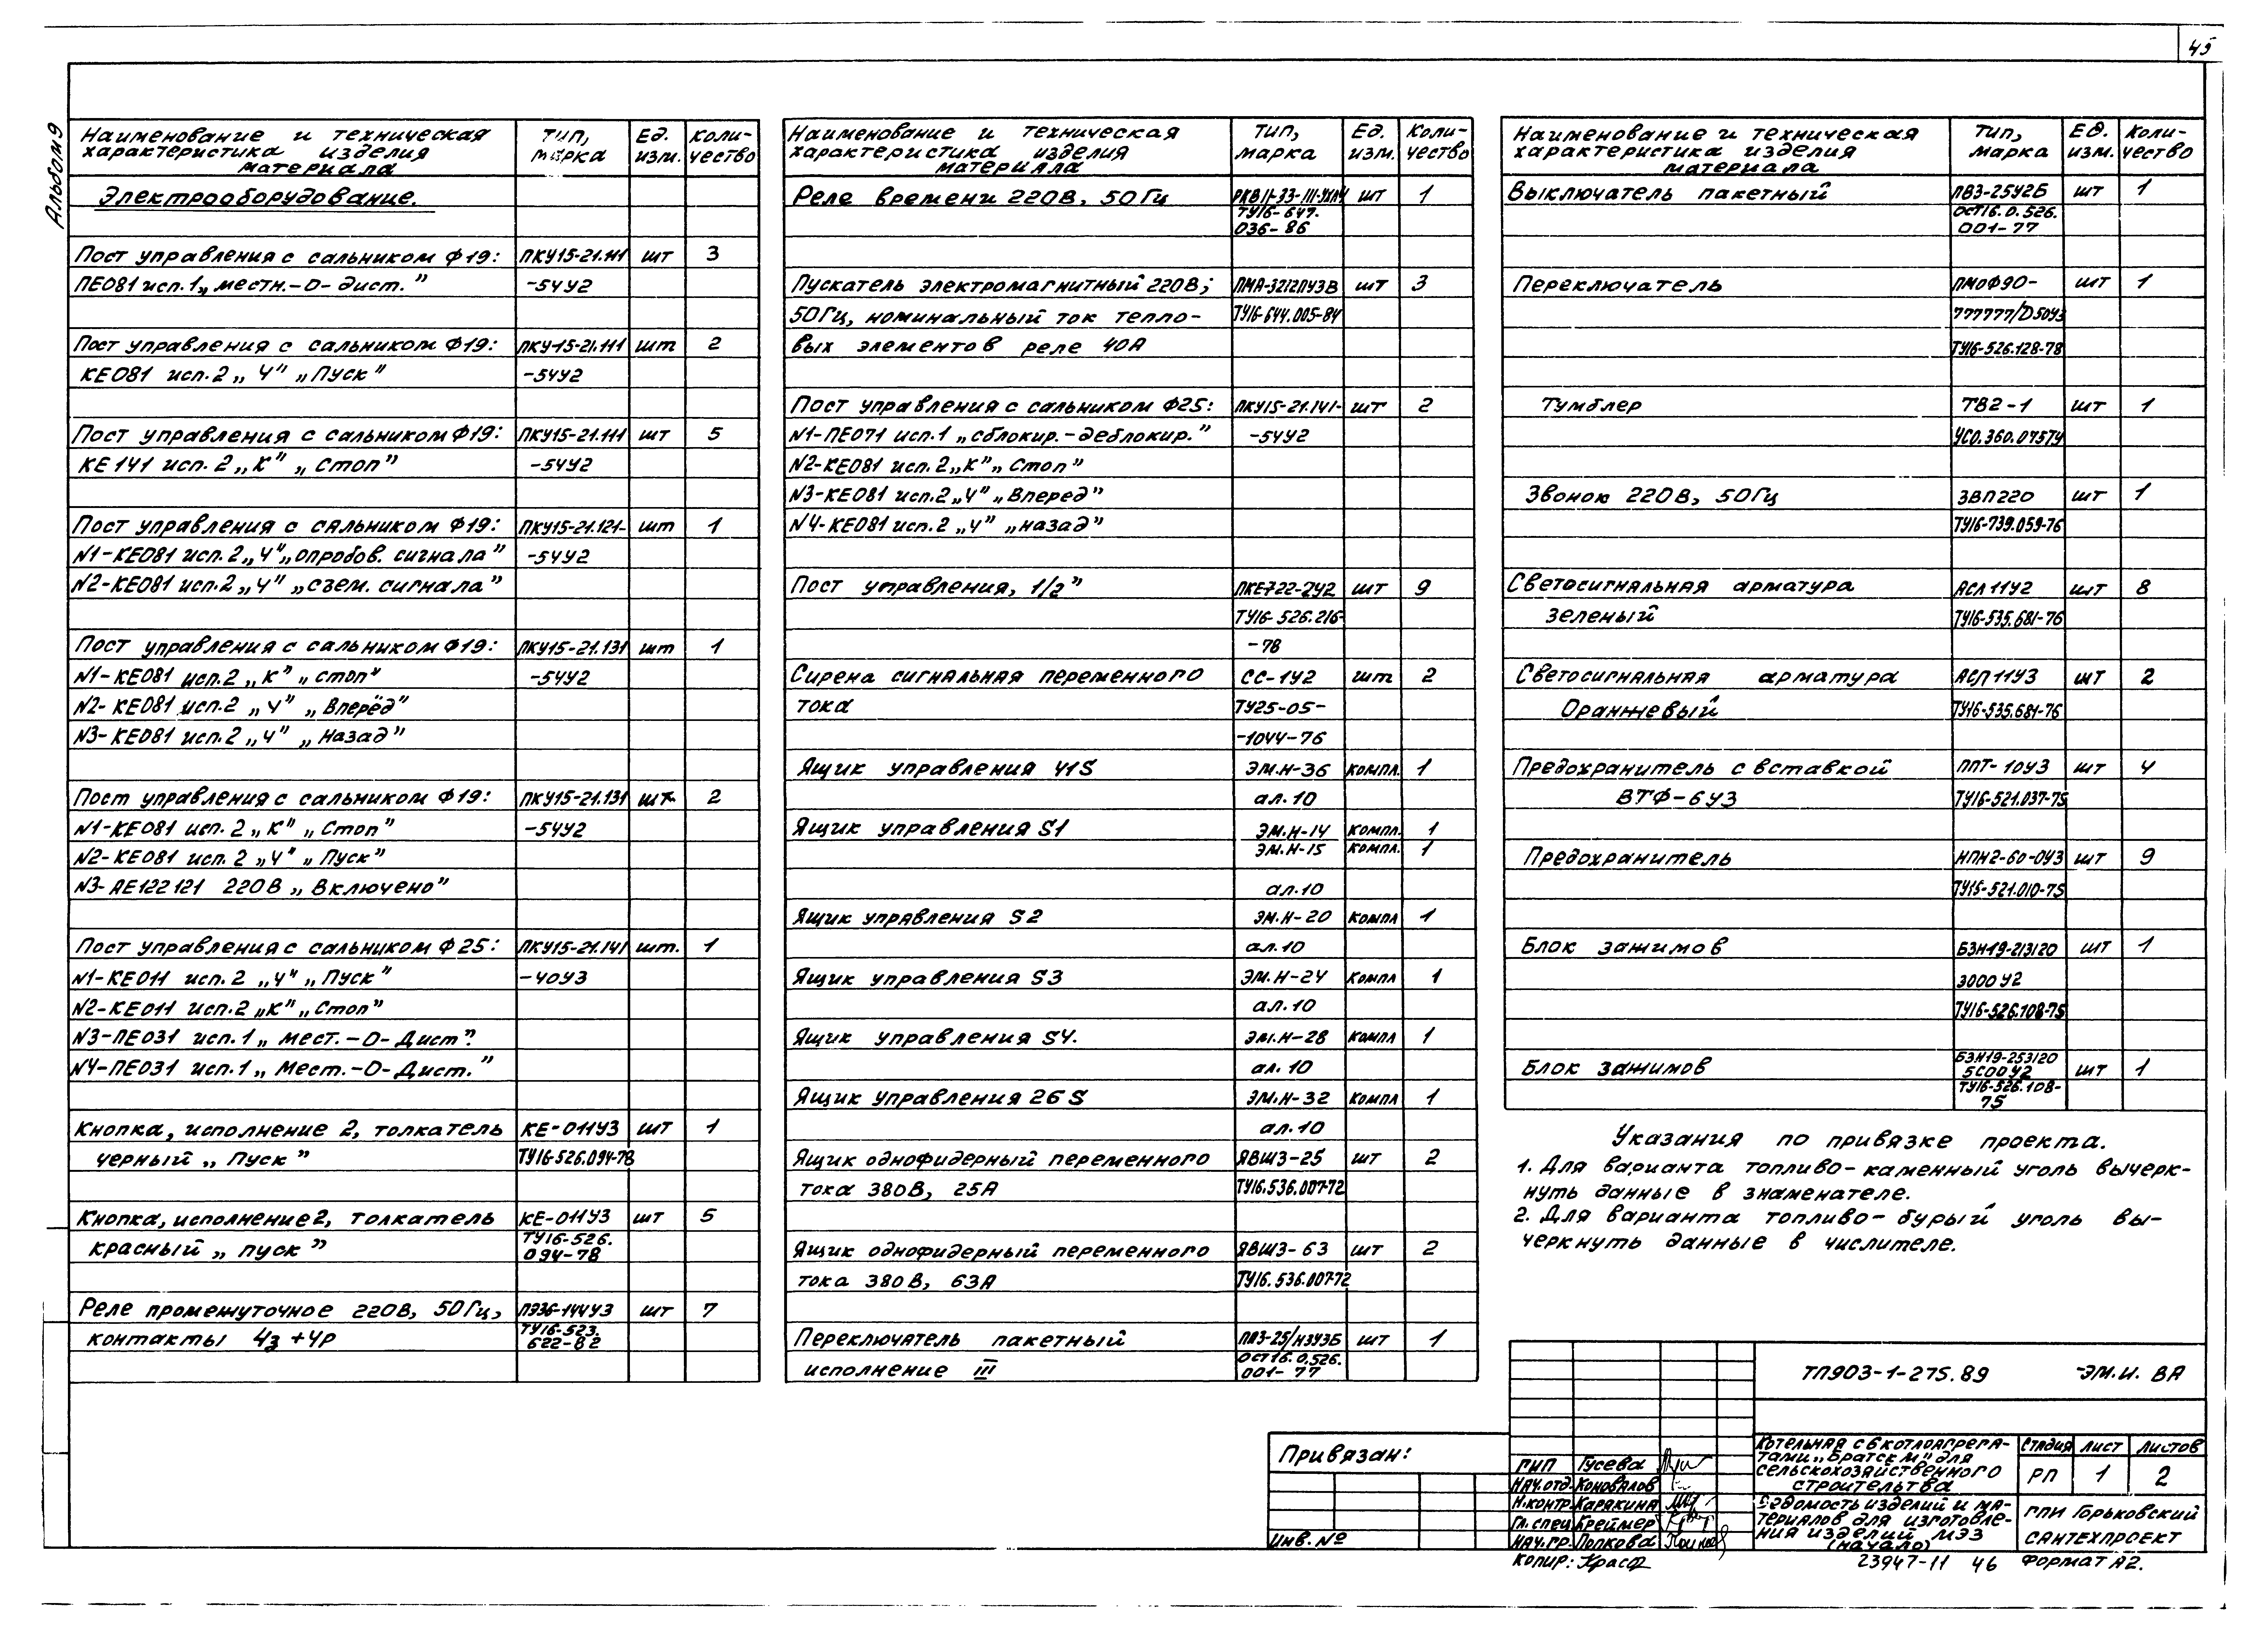 45
Альбом 9
Наименование и техническая характеристика изделия материала | Тип, марка | Ед. изм. | Коли-чество
Электрооборудование.
Пост управления с сальником Ф19: | ПКУ15-21.111 | шт | 3
ПЕ081 исп.1 „местн.-О-дист.” | -54У2
Пост управления с сальником Ф19: | ПКУ-15-21.111 | шт | 2
КЕ081 исп.2 „Ч” „Пуск” | -54У2
Пост управления с сальником Ф19: | ПКУ15-21.111 | шт | 5
КЕ141 исп.2 „К” „Стоп” | -54У2
Пост управления с сальником Ф19: | ПКУ15-21.121- | шт | 1
N1-КЕ081 исп.2 „Ч” „опробов. сигнала” | -54У2
N2-КЕ081 исп.2 „Ч” „съем. сигнала”
Пост управления с сальником Ф19: | ПКУ15-21.131 | шт | 1
N1-КЕ081 исп.2 „К” „стоп” | -54У2
N2-КЕ081 исп.2 „Ч” „Вперёд”
N3-КЕ081 исп.2 „Ч” „Назад”
Пост управления с сальником Ф19: | ПКУ15-21.131 | шт. | 2
N1-КЕ081 исп.2 „К” „Стоп” | -54У2
N2-КЕ081 исп.2 „Ч” „Пуск”
N3-АЕ122121 220В „Включено”
Пост управления с сальником Ф25: | ПКУ15-21.141 | шт. | 1
N1-КЕ011 исп.2 „Ч” „Пуск” | -40У3
N2-КЕ011 исп.2 „К” „Стоп”
N3-ПЕ031 исп.1 „мест.-О-Дист”.
N4-ПЕ031 исп.1 „Мест.-О-Дист.”
Кнопка, исполнение 2, толкатель | КЕ-011У3 | шт | 1
черный „Пуск” | ТУ16-526.094-78
Кнопка, исполнение 2, толкатель | КЕ-011У3 | шт | 5
красный „пуск” | ТУ16-526. 094-78
Реле промежуточное 220В, 50Гц, | ПЭ36-144У3 | шт | 7
контакты 4з+4р | ТУ16-523. 622-82
Наименование и техническая характеристика изделия материала | Тип, марка | Ед. изм. | Коли-чество
Реле времени 220В, 50Гц | шт | 1
ТУ16-647.
036-86
Пускатель электромагнитный 220В; | ПМА-3212ПУ3В | шт | 3
50Гц, номинальный ток тепло- | ТУ16-644.005-84
вых элементов реле 40А
Пост управления с сальником Ф25: | ПКУ15-21.141- | шт | 2
N1-ПЕ071 исп.1 „сблокир.-деблокир.” | -54У2
N2-КЕ081 исп.2 „К” „Стоп”
N3-КЕ081 исп.2 „Ч” „Вперед”
N4-КЕ081 исп.2 „Ч” „назад”
Пост управления, 1/2” | ПКЕ722-2У2 | шт | 9
ТУ16-526.216-
-78
Сирена сигнальная переменного | СС-1У2 | шт | 2
тока | ТУ25-05-
-1044-76
Ящик управления 41S | ЭМ.Н-36 | компл. | 1
ал.10
Ящик управления S1 | ЭМ.Н-14 | компл. | 1
ЭМ.Н-15 | компл. | 1
ал.10
Ящик управления S2 | ЭМ.Н-20 | компл | 1
ал.10
Ящик управления S3 | ЭМ.Н-24 | компл | 1
ал.10
Ящик управления S4. | ЭМ.Н-28 | компл | 1
ал.10
Ящик управления 26S | ЭМ.Н-32 | компл | 1
ал.10
Ящик однофидерный переменного | ЯВШ3-25 | шт | 2
тока 380В, 25А | ТУ16.536.007-72
Ящик однофидерный переменного | ЯВШ3-63 | шт | 2
тока 380В, 63А | ТУ16.536.007-72
Переключатель пакетный | ПП3-25/Н3У3Б | шт | 1
исполнение III | ОСТ16.0.526. 001-77
Наименование и техническая характеристика изделия материала | Тип, марка | Ед. изм. | Коли-чество
Выключатель пакетный | ПВ3-25У2Б | шт | 1
ОСТ16.0.526.
001-77
Переключатель | ПМОФ90- | шт | 1
777777/D50У3
ТУ16-526.128-78
Тумблер | ТВ2-1 | шт | 1
УСО.360.075ТУ
Звонок 220В, 50Гц | ЗВП220 | шт | 1
ТУ16-739.059-76
Светосигнальная арматура | АСЛ11У2 | шт | 8
зеленый | ТУ16-535.681-76
Светосигнальная арматура | АСЛ11У3 | шт | 2
Оранжевый | ТУ16-535.681-76
Предохранитель с вставкой | ППТ-10У3 | шт | 4
ВТФ-6У3 | ТУ16-521.037-75
Предохранитель | НПН2-60-0У3 | шт | 9
ТУ16-521.010-75
Блок зажимов | БЗН19-213120 | шт | 1
3000У2
ТУ16-526.108-75
Блок зажимов | БЗН19-253120 5С00У2 | шт | 1
ТУ16-526.108-
75
Указания по привязке проекта.
1. Для варианта топливо-каменный уголь вычерк-
нуть данные в знаменателе.
2. Для варианта топливо-бурый уголь вы-
черкнуть данные в числителе.
ТП903-1-275.89 -ЭМ.И. ВА
Привязан:
Инв.№
ГИП Гусева
Нач.отд. Коновалов
Н.контр. Карякина
Гл.спец. Креймер
Нач.гр. Попкова
Котельная с 6 котлоагрега-
тами „Братск М” для
сельскохозяйственного
строительства
Стадия | Лист | Листов
РП | 1 | 2
Ведомость изделий и ма-
териалов для изготовле-
ния изделий МЭЗ
(начало)
ГПИ Горьковский
Сантехпроект
Копир:
23947-11 46 Формат А2.